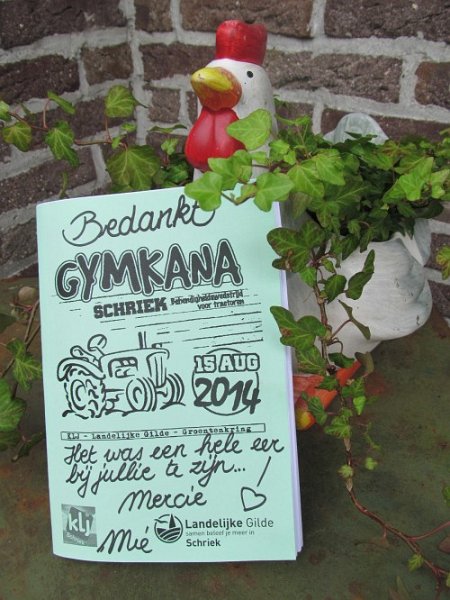 Bedankt
GYMKANA
SCHRIEK Behendigheidswedstrijd
voor tractoren
15 AUG
2014
KLJ - Landelijke Gilde - Groentenkring
Het was een hele eer
bij jullie te zijn...!
Mercie
Mié
klj
Schriek
Landelijke Gilde
samen beleef je meer in
Schriek